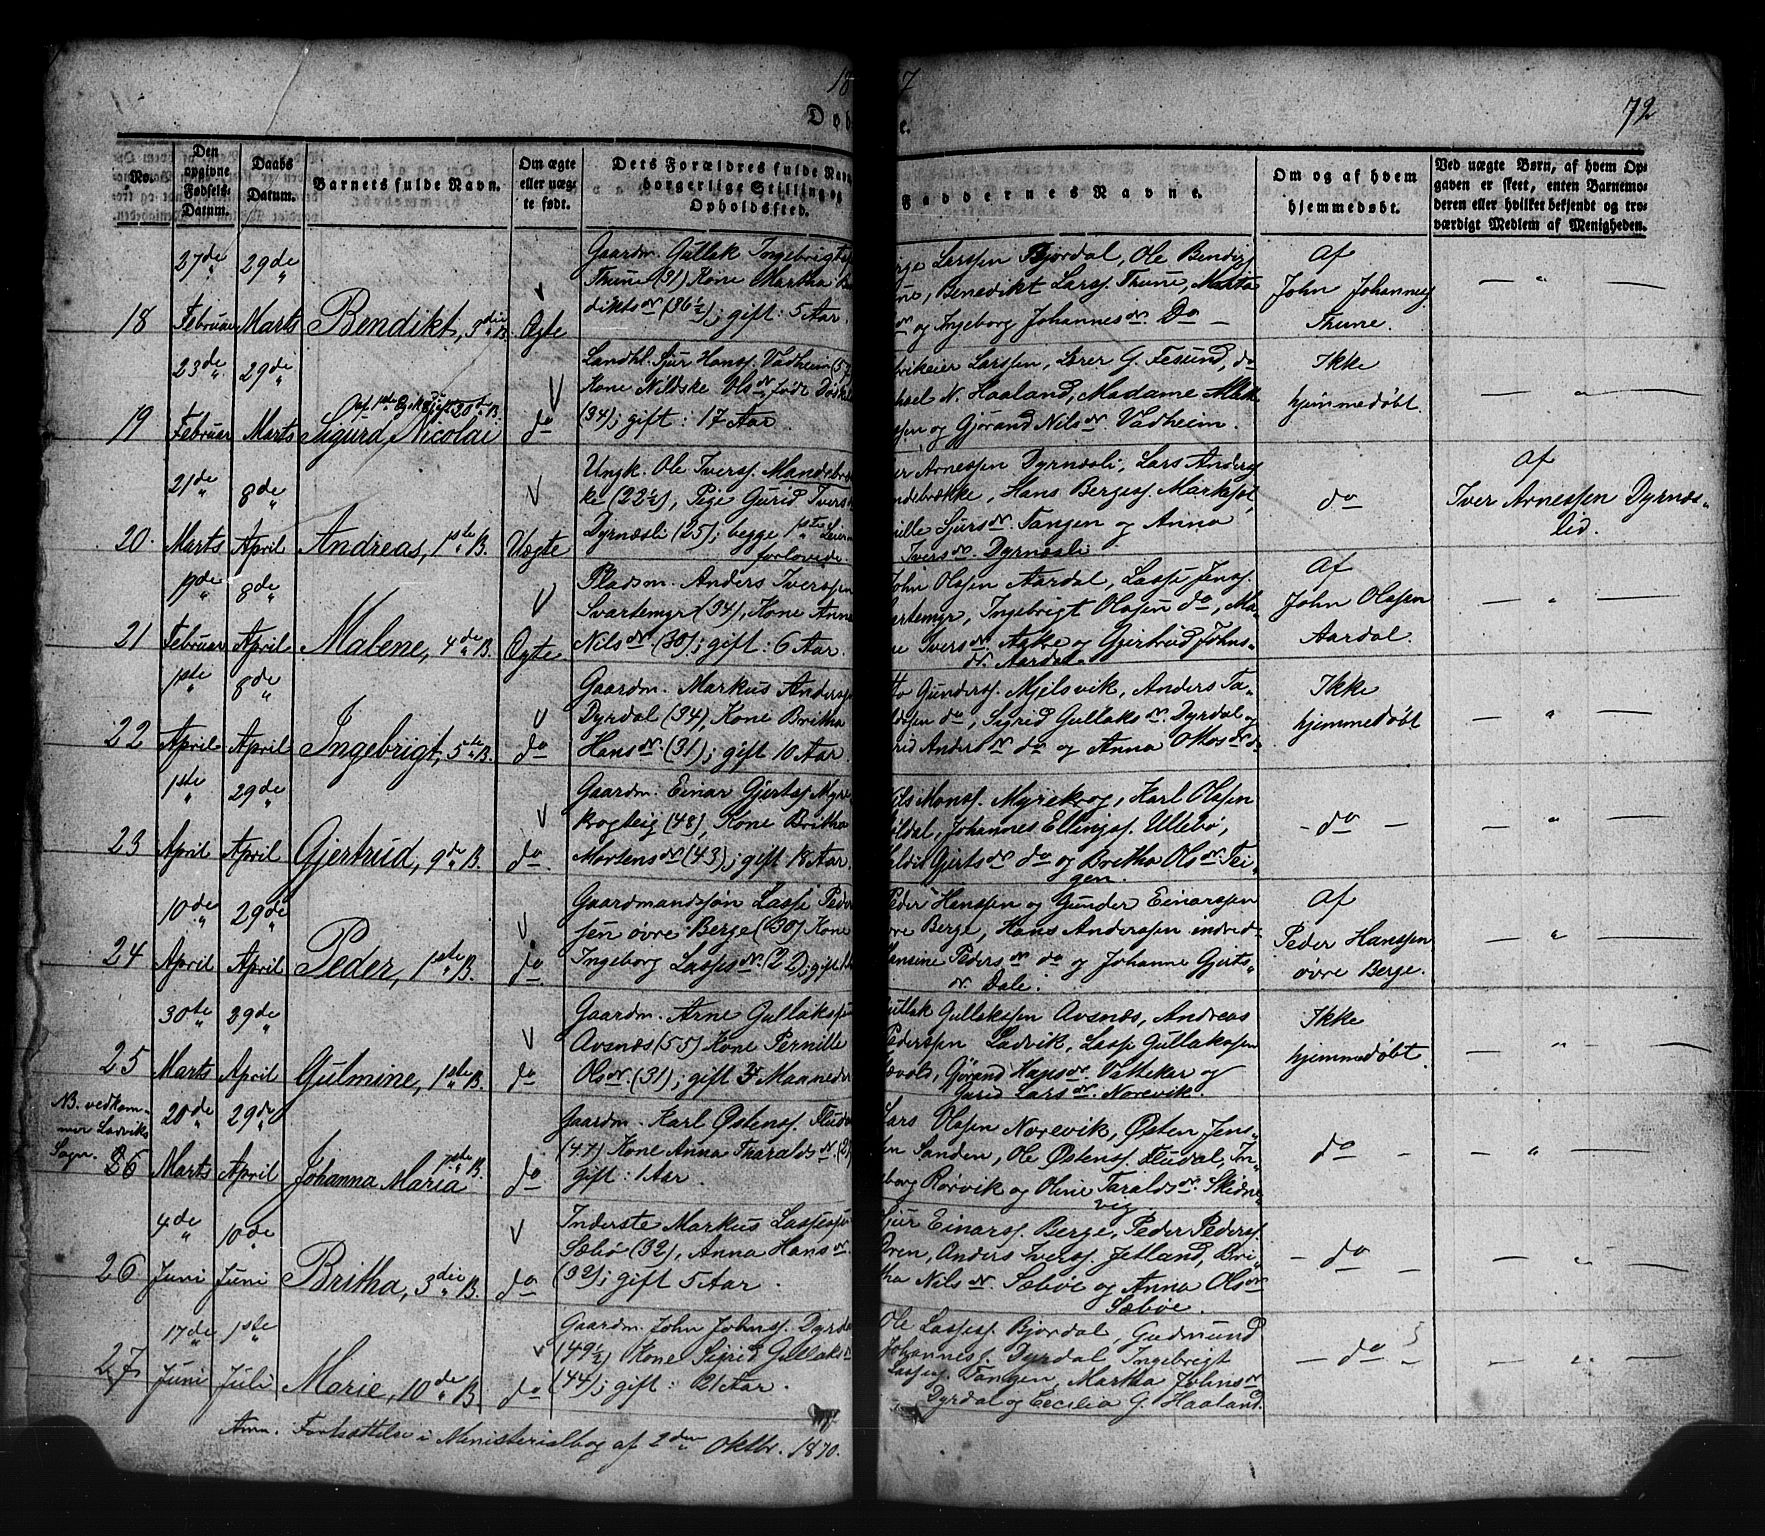 18
7
72
Døb
e.
No.
Den
opgivne
Fødsels-
Datum.
Daabs
Datum.
Barnets fulde Navn.
Om ægte
eller uæg-
te født.
Dets Forældres fulde Navn
borgerlige Stilling og
Opholdssted.
Faddernes Navne.
Om og af hvem
hjemmedøbt.
Ved uægte Børn, af hvem Op-
gaven er skeet, enten Barnemo-
deren eller hvilket bekjendt og tro-
værdigt Medlem af Menigheden.
18
27de Februar
29de Marts
Bendikt, 3die B.
Ægte
Gaardm. Gullak Ingebrigts
Thune (31) Kone Martha B
diktsdr (36½); gift: 5 Aar.
Larssen Bjordal, Ole Bendix
Benedikt Larss. Thune, Marta
og Ingeborg Johannesdr. Do
Af
John Johannes
Thune.
19
23de Februar
29de Marts
Sigurd Nicolai
do
Landhl. Sjur Hanss. Vadheim
Kone Nildske Olsdr, født
(34); gift: 17 Aar.
Larssen, Lærer G. Fesund, do
N. Haaland, Madame
og Gjørand Nilsdr. Vadheim.
Ikke
hjemmedøbt
20.
21de Marts
8de April
Andreas, 1ste B.
Uægte
Ungk. Ole Iverss. Mandsbræk
ke (22½), Pige Gurid Ivers
Dyrnæsli (25); begge 1ste Leier
forlovede
Arnessen Dyrnæsli, Lars Anders
Hans Berges. Marksøt,
Sjursdr. Tangen og Anna
Iversdr. Dyrnæsli
do
Af
Iver Arnessen Dyrnæs-
lid.
21
19de Februar
8de April
Malene, 4de B.
Ægte
Pladsm. Anders Iverssen
Svartemyr (34), Kone Anne
Nilsdr (30); gift: 6 Aar.
John Olssen Aardal, Lasse Jenss.
Ingebrigt Olssen do, Ma-
Iversdr. Aske og Gjertrud Johns-
dr. Aardal.
Af
John Olssen
Aardal.
22
1ste April
8de April
Ingebrigt, 5te B.
do
Gaardm. Markus Anderssen
Dyrdal (34), Kone Britha
Hansdr (31); gift 10 Aar.
Gunderss. Mjelsvik, Anders Ta-
do, Sigrid Gullaksdr. Dyrdal og
Andersdr do og Anna Ottosdr do
Ikke
hjemmedøbt
23
1ste April
29de April
Gjertrud, 9de B.
do.
Gaardm. Einar Gjertss. Myre
krogteig (48), Kone Britha
Mortensdr (43); gift 18 Aar.
Nils Monss. Myrekrog, Karl Olssen
Johannes Ellingss. Ullebø,
Gjertsdr. do og Britha Olsdr. Tei-
gen.
- do -
24
10de April
29de April
Peder, 1ste B.
do.
Gaardmandssøn Lasse Peder
sen øvre Berge (30) Kone
Ingeborg Lassesdr. (22); gift
Peder Hanssen og Gunder Einarssen
Berge, Hans Anderssen indred-
Pedersdr do og Johanne Gjerts-
dr. Dale.
Af
Peder Hanssen
øvre Berge.
25
30te Marts
29de April
Gulmine, 1ste B.
do
Gaardm. Arne Gullakssen
Avsnæs (55) Kone Pernille
Olsdr. (31); gift 3 Maaneder
Gullak Gullakssen Avsnæs, Andreas
Pederssen Ladvik, Lasse Gullakssen
Gjørand Hansdr. Vatteker og
Gurid Larsdr. Norevik.
Ikke
hjemmedøbt
NB. vedkom-
mer Ladviks
Sogn.
20de Marts
29de April
Johanna Maria 1ste B.
do
Gaardm. Karl Østenss. Fludal
(47) Kone Anna Tharaldsdr.
gift: 1 Aar.
Lars Olssen Norevik, Østen Jens-
sen Sanden, Ole Østenss. Fludal, In-
Rørvik og Oline Taraldsdr. Skidne-
vig
do
26
4de Juni
10de Juni
Britha, 3die B.
do
Inderste Markus Lassessen
Sæbø (32), Anna Hansdr.
(32); gift 5 Aar.
Sjur Einarss. Berge, Peder Pederss.
Øren, Anders Iverss. Jetland, Bri-
tha Nilsdr. Sæbøe og Anna Olsdr
Sæbøe.
- do -
27
17de Juni
1ste Juli
Marie, 10de B.
do
Gaardm. John Johnss. Dyrdal
(49½) Kone Sigrid Gullaks
(44); gift: 21 Aar.
Ole Lassess. Bjordal, Gudmund
Johanness. Dyrdal, Ingebrigt
Lassess. Tangen, Martha Johnsdr
Dyrdal og Cecilia G. Haaland.
- do -
Anm. Fortsættelse i Ministerialbog af 2den Oktbr. 1870.